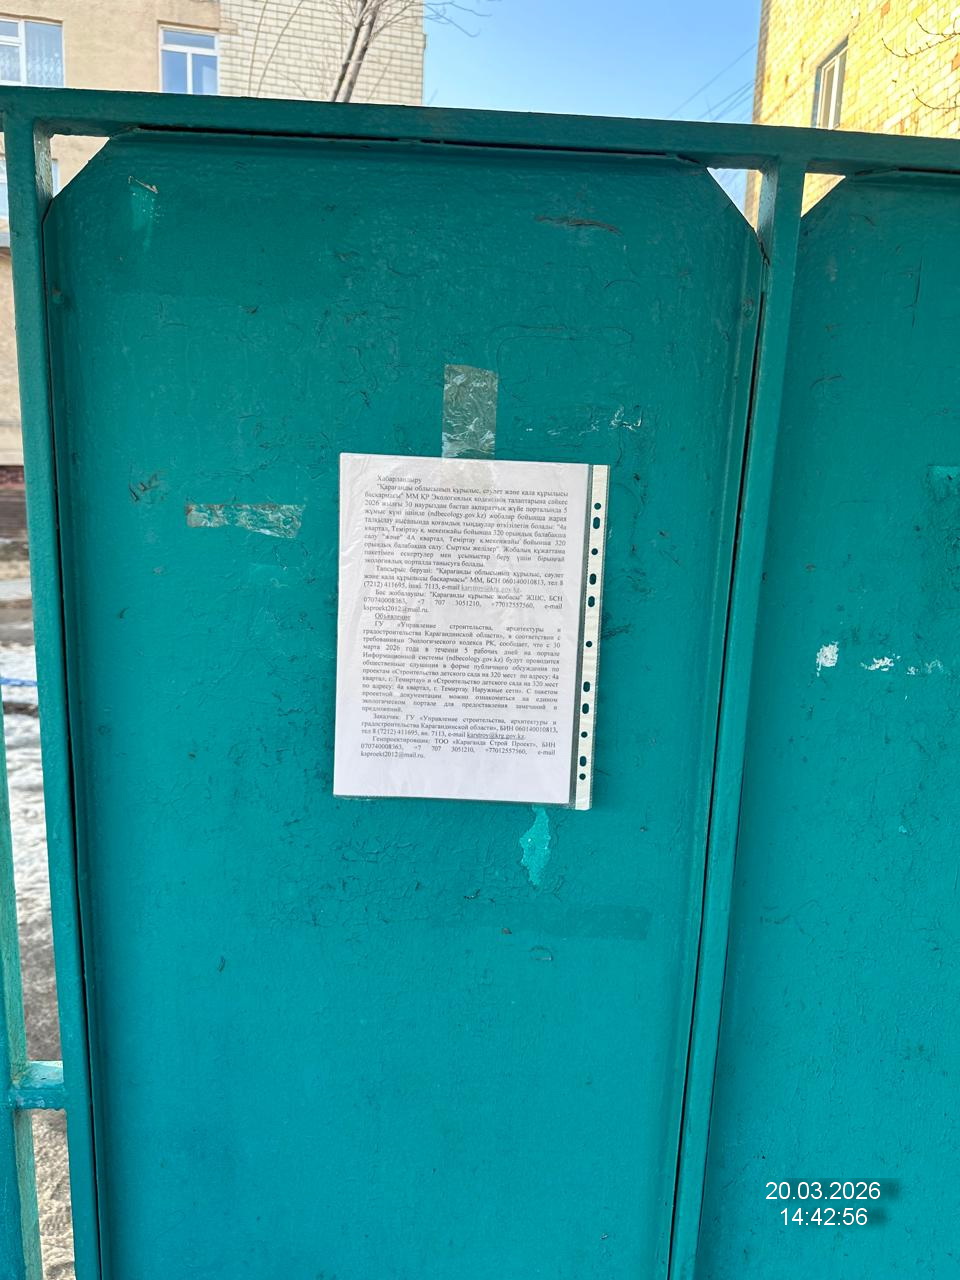 Хабарландыру
"Қарағанды облысының құрылыс, сәулет және қала құрылысы
басқармасы" ММ ҚР Экологиялық кодексінің талаптарына сәйкес
2026 жылғы 30 наурыздан бастап ақпараттық жүйе порталында 5
жұмыс күні ішінде (ndbecology.gov.kz) жобалар бойынша жария
талқылау нысанында қоғамдық тыңдаулар өткізілетін болады: "4а
квартал, Теміртау қ. мекенжайы бойынша 320 орындық балабақша
салу "және" 4А квартал, Теміртау қ.мекенжайы бойынша 320
орындық балабақша салу. Сыртқы желілер". Жобалық құжаттама
пакетімен ескертулер мен ұсыныстар беру үшін бірыңғай
экологиялық порталда танысуға болады.
Тапсырыс беруші: "Қарағанды облысының құрылыс, сәулет
және қала құрылысы басқармасы" ММ, БСН 060140010813, тел 8
(7212) 411695, ішкі. 7113, e-mail karstroy@krg.gov.kz.
Бас жобалаушы: "Қарағанды құрылыс жобасы" ЖШС, БСН
070740008363, +7 707 3051210, +77012557560, e-mail
ksproekt2012@mail.ru.
Объявление
ГУ «Управление строительства, архитектуры и
градостроительства Карагандинской области», в соответствии с
требованиями Экологического кодекса РК, сообщает, что с 30
марта 2026 года в течении 5 рабочих дней на портале
Информационной системы (ndbecology.gov.kz) будут проводится
общественные слушания в форме публичного обсуждения по
проектам «Строительство детского сада на 320 мест по адресу: 4а
квартал, г. Темиртау» и «Строительство детского сада на 320 мест
по адресу: 4а квартал, г. Темиртау. Наружные сети». С пакетом
проектной документации можно ознакомиться на едином
экологическом портале для предоставления замечаний и
предложений.
Заказчик: ГУ «Управление строительства, архитектуры и
градостроительства Карагандинской области», БИН 060140010813,
тел 8 (7212) 411695, вн. 7113, e-mail karstroy@krg.gov.kz.
Генпроектировщик: ТОО «Караганда Строй Проект», БИН
070740008363, +7 707 3051210, +77012557560, e-mail
ksproekt2012@mail.ru.
20.03.2026
14:42:56